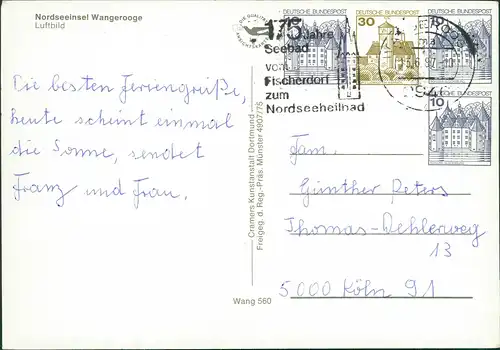 Nordseeinsel Wangerooge
Luftbild
Die besten Feriengrüße,
heute scheint einmal
die Sonne, sendet
Franz und Frau.
Cramers Kunstanstalt Dortmund
Freigeg. d. Reg.-Präs. Münster 4907/78
Wang 560
175 Jahre
Seebad
vom
Fischerdorf
zum
Nordseeheilbad
DEUTSCHE BUNDESPOST
10
DEUTSCHE BUNDESPOST
30
DEUTSCHE BUNDESPOST
DEUTSCHE BUNDESPOST
10
Fam.
Günther Peters
Thomas-Dehlerweg
13
5000 Köln 91